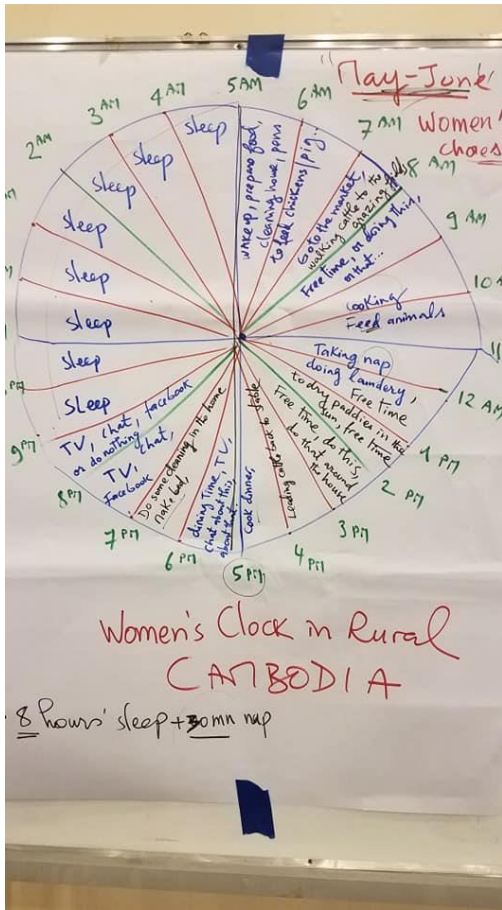 "May-June"
Women's
chores
5 AM
6 AM
7 AM
8 AM
9 AM
10 A
11
12 AM
1 PM
2 PM
3 PM
4 PM
5 PM
6 PM
7 PM
8 PM
9 PM
PM
2 AM
3 AM
4 AM
wake up, prepare food,
cleaning house, pens
to feed chickens/pig..
Go to the market,
walking cattle to the
grazing fields
Free time, or doing this,
or that...
Cooking
Feed animals
Taking nap
doing laundery,
Free time
to dry paddies in the
sun, free time
Free time, do this,
do that around
the house
cattle back to stable
Cook dinner,
dining time, TV,
chat about this,
about that..
Do some cleaning in the home
make bed,
TV, chat,
Facebook
TV, chat, facebook
or do nothing
SLeep
Sleep
Sleep
Sleep
Sleep
Sleep
Sleep
Sleep
Women's Clock in Rural
CAMBODIA
8 hours' sleep + 30mn nap